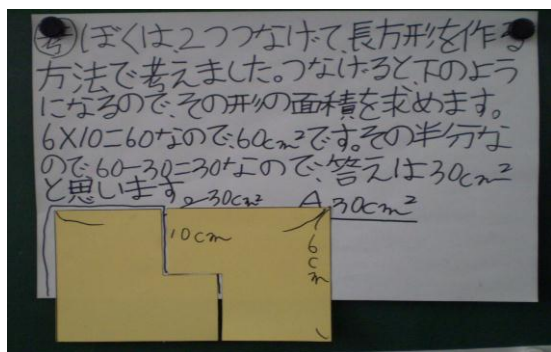 考 ぼくは、2つつなげて、長方形を作る
方法で考えました。つなげると、下のよう
になるので、その形の面積を求めます。
6×10=60なので、60cm²です。その半分な
ので、60-30=30なので、答えは30cm²
と思います。
30cm²
A 30cm²
10cm
6cm